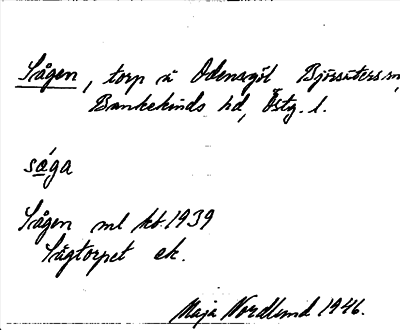 Sågen, torp å Odensgöl Björsäters sn,
Bankekinds hd, Östg. l.
såga
Sågen ml kb. 1939
Sågtorpet ek.
Maja Nordlund 1946.